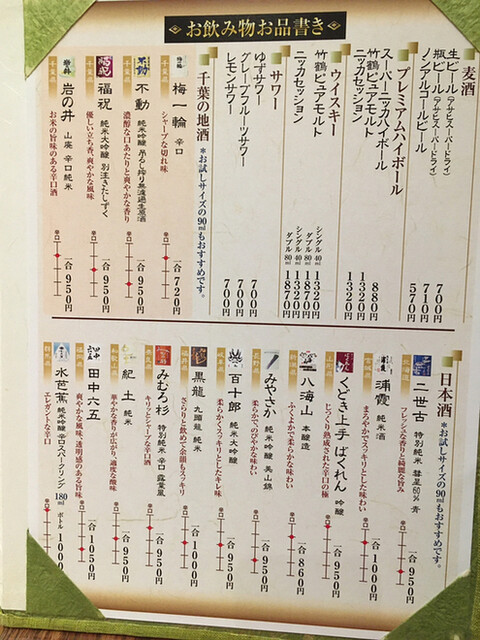 お飲み物お品書き
麦酒
生ビール(アサヒスーパードライ) 700円
瓶ビール(アサヒスーパードライ) 710円
ノンアルコールビール 570円
プレミアムハイボール
スーパーニッカハイボール 880円
竹鶴ピュアモルト 1320円
ニッカセッション 1320円
ウイスキー
竹鶴ピュアモルト シングル40ml 1320円
ダブル80ml 1870円
ニッカセッション シングル40ml 1320円
ダブル80ml 1870円
サワー
ゆずサワー 700円
グレープフルーツサワー 700円
レモンサワー 700円
千葉の地酒 *お試しサイズの90mlもおすすめです。
千葉県 梅一輪 辛口
シャープな切れ味
辛口 一合 750円
千葉県 不動 純米吟醸 吊るし搾り無濾過生原酒
濃醇な口あたりと爽やかな香り
辛口 一合 950円
千葉県 福祝 純米大吟醸 別注きたしずく
優しい立ち香、爽やかな風味
辛口 一合 950円
千葉県 岩の井 山廃 辛口純米
お米の旨味のある辛口酒
辛口 一合 950円
日本酒 *お試しサイズの90mlもおすすめです。
二世古 特別純米 彗星60% 青
フレッシュな香りと綺麗な旨み
辛口 一合 950円
宮城県 浦霞 純米酒
まろやかでスッキリとした味わい
辛口 一合 1000円
山形県 くどき上手 ばくれん 吟醸
じっくり熟成された辛口の極
辛口 一合 950円
新潟県 八海山 本醸造
ふくよかで柔らかな味わい
辛口 一合 860円
長野県 みやさか 純米吟醸 美山錦
柔らかで、のびやかな味わい
辛口 一合 950円
岐阜県 百十郎 純米大吟醸
柔らかくスッキリとしたキレ味
辛口 一合 950円
福井県 黒龍 九頭龍 純米
さらりと飲めて余韻もスッキリ
辛口 一合 1000円
奈良県 みむろ杉 特別純米 辛口 露葉風
キリッとシャープな辛口酒
辛口 一合 950円
和歌山県 紀土 純米
華やかな香りが広がり、適度な酸味
辛口 一合 950円
福岡県 田中六五
爽やかな風味、透明感のある旨味
辛口 一合 1050円
群馬県 水芭蕉 純米吟醸 辛口スパークリング 180ml ボトル
エレガントな辛口
辛口